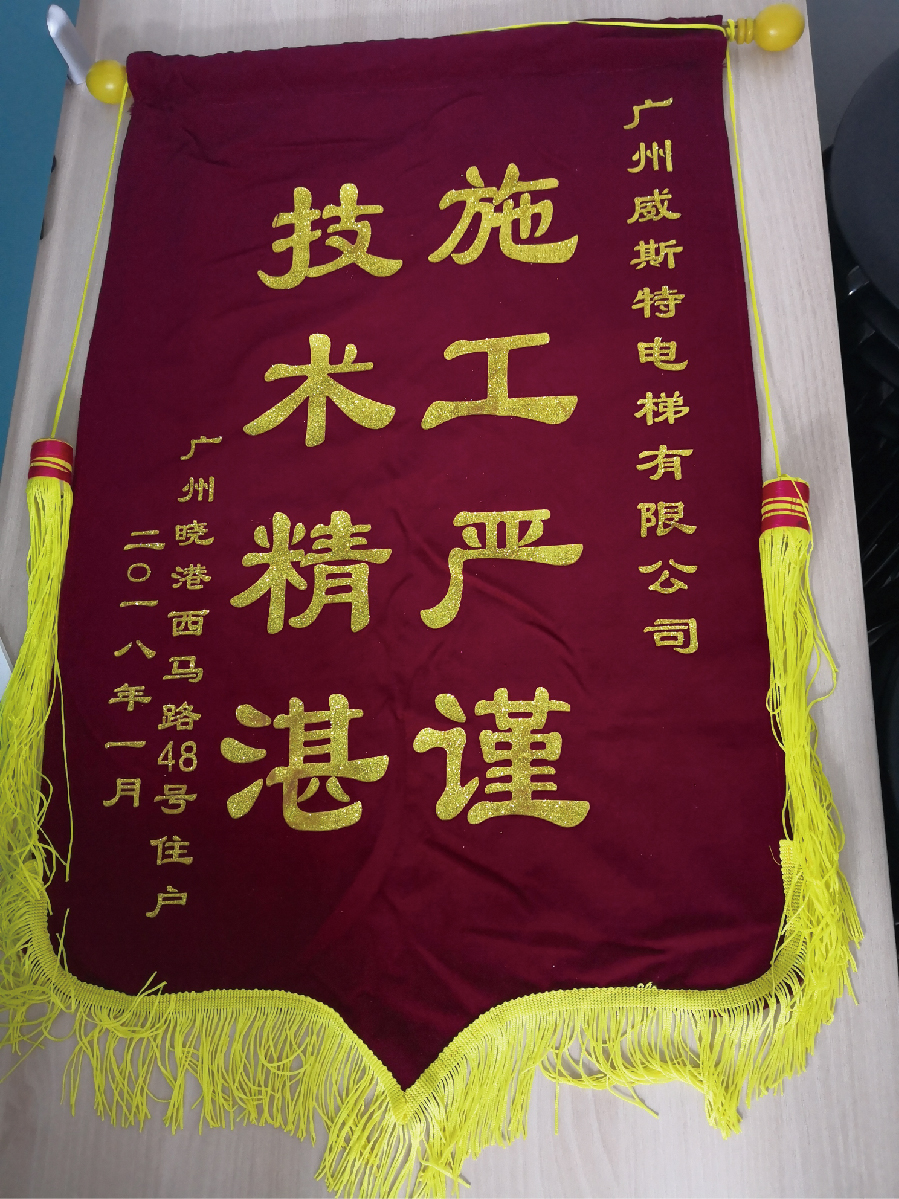 广州威斯特电梯有限公司
施工严谨
技术精湛
广州晓港西马路48号住户
二〇一八年一月